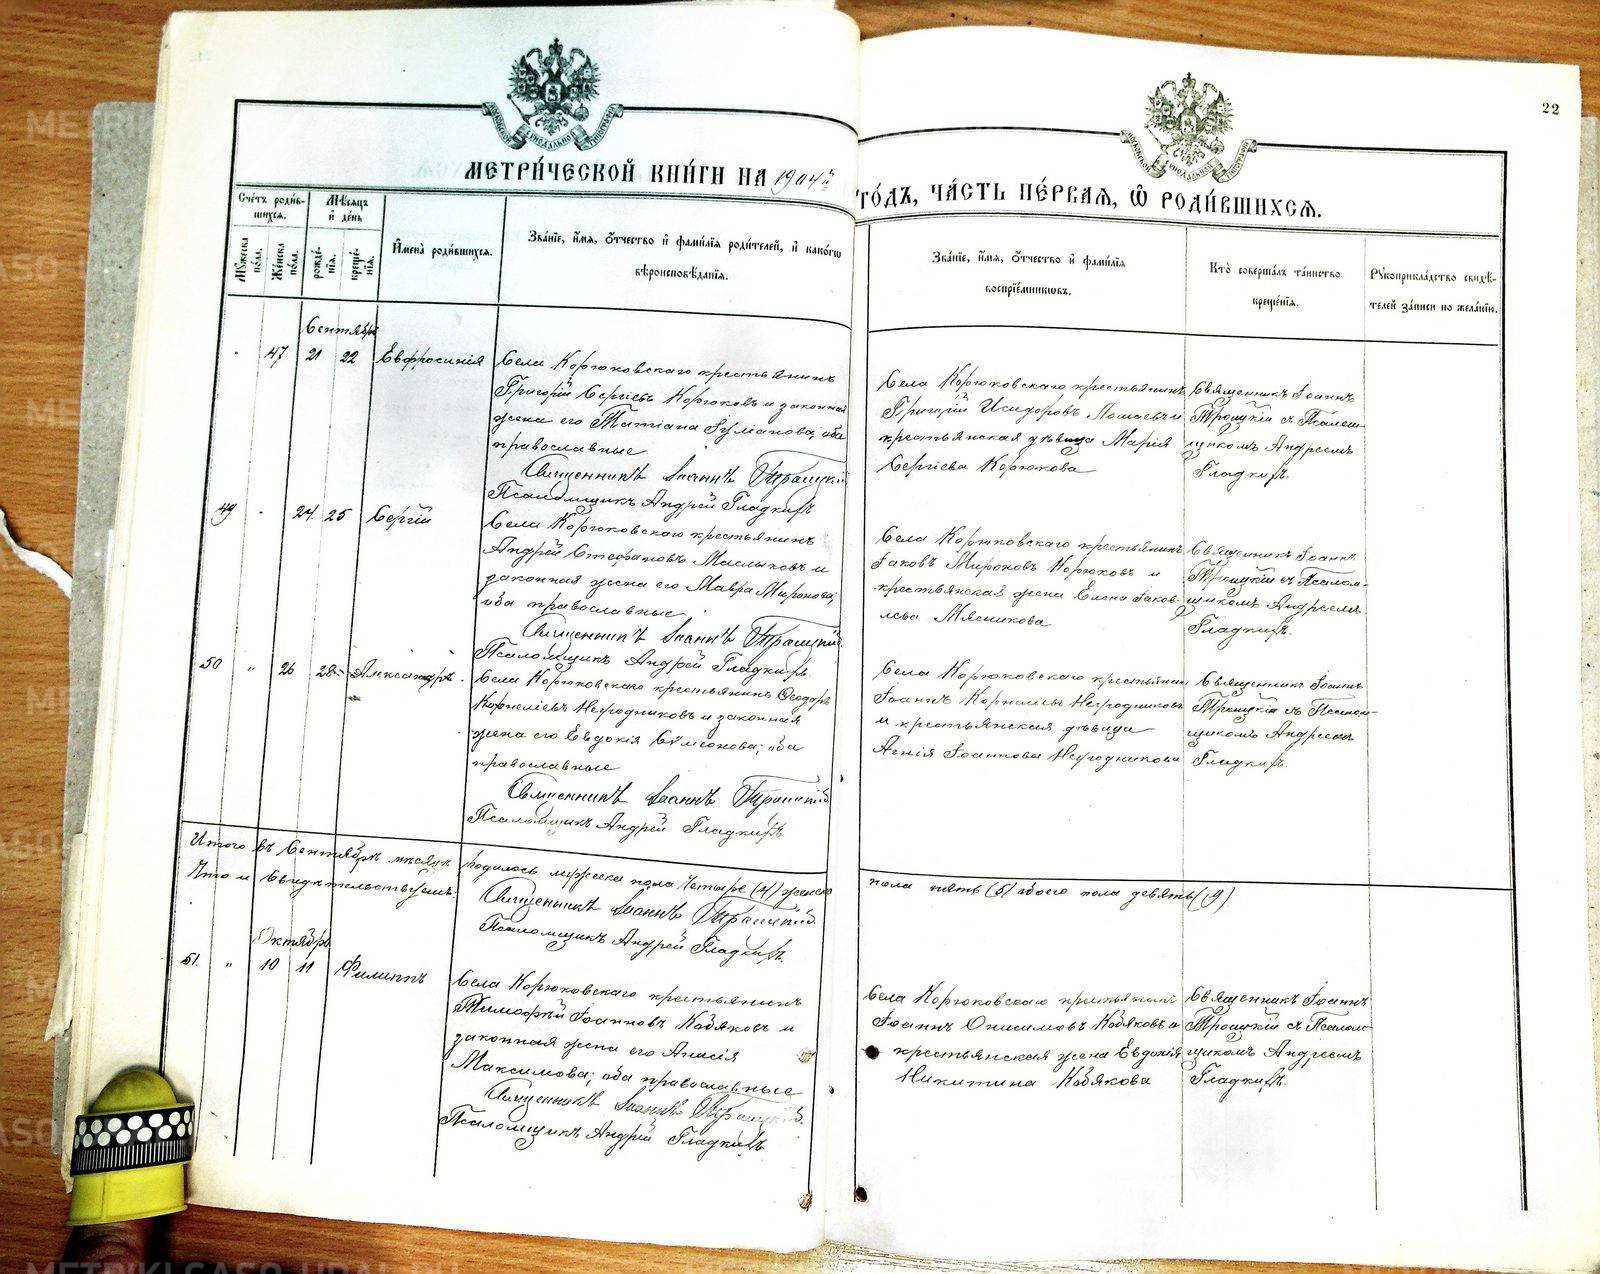 22
МЕТРИ́ЧЕСКОЙ КНИ́ГИ НА 1904й
ГО́ДЪ, ЧА́СТЬ ПЕ́РВАѦ, Ѽ РОДИ́ВШИХСѦ.
Счетъ роди́вшихсѧ.
Мѣсѧцъ и де́нь
Му́жеска по́ла.
Же́нска по́ла.
рожде́нїѧ.
креще́нїѧ.
Имена̀ роди́вшихсѧ.
Зва́нїе, и́мѧ, о́тчество и фами́лїѧ роди́телей, и како́гѡ
вѣроисповѣ́данїѧ.
Зва́нїе, и́мѧ, о́тчество и фами́лїѧ
воспрїе́мникѡвъ.
Кто̀ соверша́лъ та́инство
креще́нїѧ.
Рꙋкоприкла́дство свидѣ́-
телей за́писи по жела́нїю.
Сентябрь
47 21 22 Евфросинія
Села Корюковскаго крестьянинъ
Григорій Сергіевъ Корюковъ и законная
жена его Татіана Іуліанова; оба
православные
Священникъ Іоаннъ Троицкій
Псаломщикъ Андрей Гладкихъ
Села Корюковскаго крестьянинъ
Григорій Исидоровъ Ломаевъ и
крестьянская дѣвица Марія
Сергіева Корюкова
Священникъ Іоаннъ
Троицкій съ Псалом-
щикомъ Андреемъ
Гладкихъ.
49 24 25 Сергій
Села Корюковскаго крестьянинъ
Андрей Стефановъ Маслыковъ и
законная жена его Мавра Миронова;
оба православные
Священникъ Іоаннъ Троицкій
Псаломщикъ Андрей Гладкихъ
Села Корюковскаго крестьянинъ
Іаковъ Мироновъ Корюковъ и
крестьянская жена Елена Іаков-
лева Мясникова
Священникъ Іоаннъ
Троицкій съ Псалом-
щикомъ Андреемъ
Гладкихъ.
50 " 26 28 Александръ.
Села Корюковскаго крестьянинъ Ѳеодоръ
Корниліевъ Негродниковъ и законная
жена его Евдокія Сѵмеонова; оба
православные
Священникъ Іоаннъ Троицкій
Псаломщикъ Андрей Гладкихъ
Села Корюковскаго крестьянинъ
Іоаннъ Корниліевъ Негродниковъ
и крестьянская дѣвица
Агнія Іоаннова Негродникова
Священникъ Іоаннъ
Троицкій съ Псалом-
щикомъ Андреемъ
Гладкихъ.
Итого въ Сентябрѣ мѣсяцѣ родилось мужеска пола Четыре (4) женска
пола пять (5) обоего пола девять (9)
Что и свидѣтельствуемъ:
Священникъ Іоаннъ Троицкій
Псаломщикъ Андрей Гладкихъ.
Октябрь
51. " 10 11 Филиппъ
Села Корюковскаго крестьянинъ
Тимоѳей Іоанновъ Кобяковъ и
законная жена его Анисія
Максимова; оба православные
Священникъ Іоаннъ Троицкій.
Псаломщикъ Андрей Гладкихъ
Села Корюковскаго крестьянинъ
Іоаннъ Онисимовъ Кобяковъ и
крестьянская жена Евдокія
Никитина Кобякова
Священникъ Іоаннъ
Троицкій съ Псалом-
щикомъ Андреемъ
Гладкихъ.